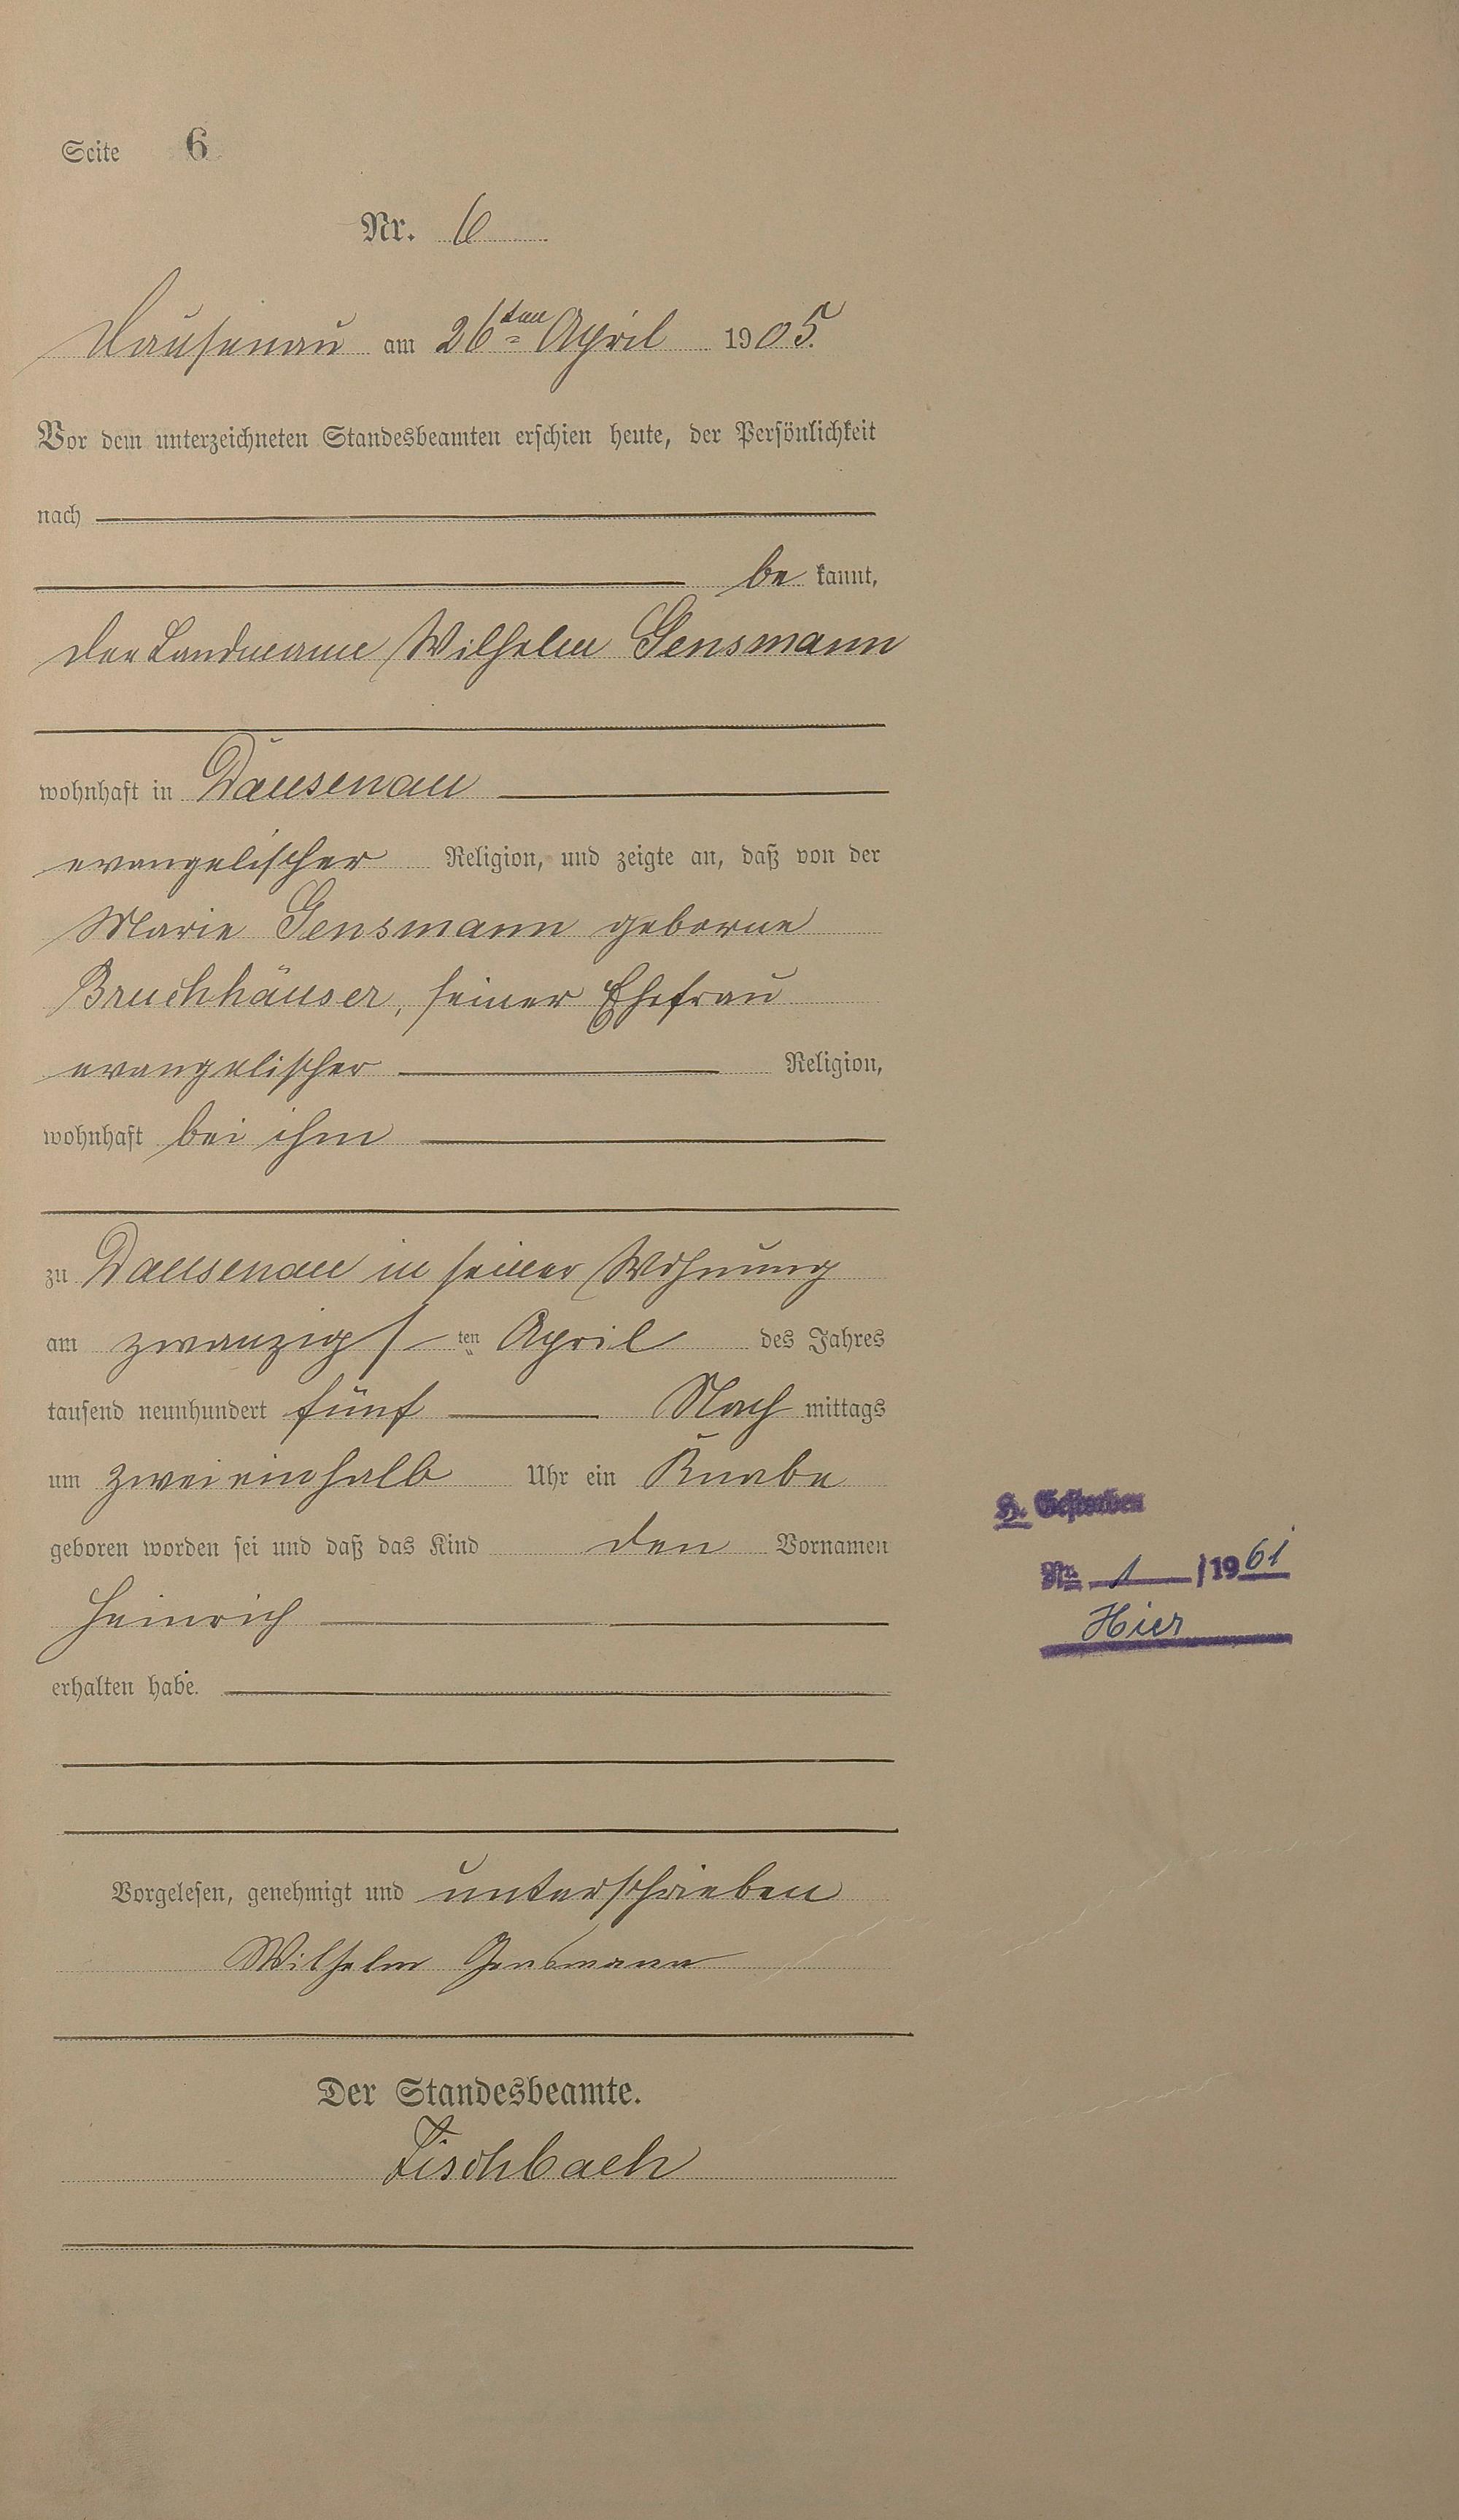 Seite 6
Nr. 6
Dausenau am 26ten April 1905.
Vor dem unterzeichneten Standesbeamten erschien heute, der Persönlichkeit
nach
be kannt,
der Landmann Wilhelm Gensmann
wohnhaft in Dausenau
evangelischer Religion, und zeigte an, daß von der
Marie Gensmann geborne
Bruchhäuser, seiner Ehefrau
evangelischer Religion,
wohnhaft bei ihm
zu Dausenau in seiner Wohnung
am zwanzigs ten April des Jahres
tausend neunhundert fünf Nach mittags
um zweieinhalb Uhr ein Knabe
geboren worden sei und daß das Kind den Vornamen
Heinrich
erhalten habe.
H. Gestorben
Nr. 1 /1961
Hier
Vorgelesen, genehmigt und unterschrieben
Wilhelm Gensmann
Der Standesbeamte.
Fischbach